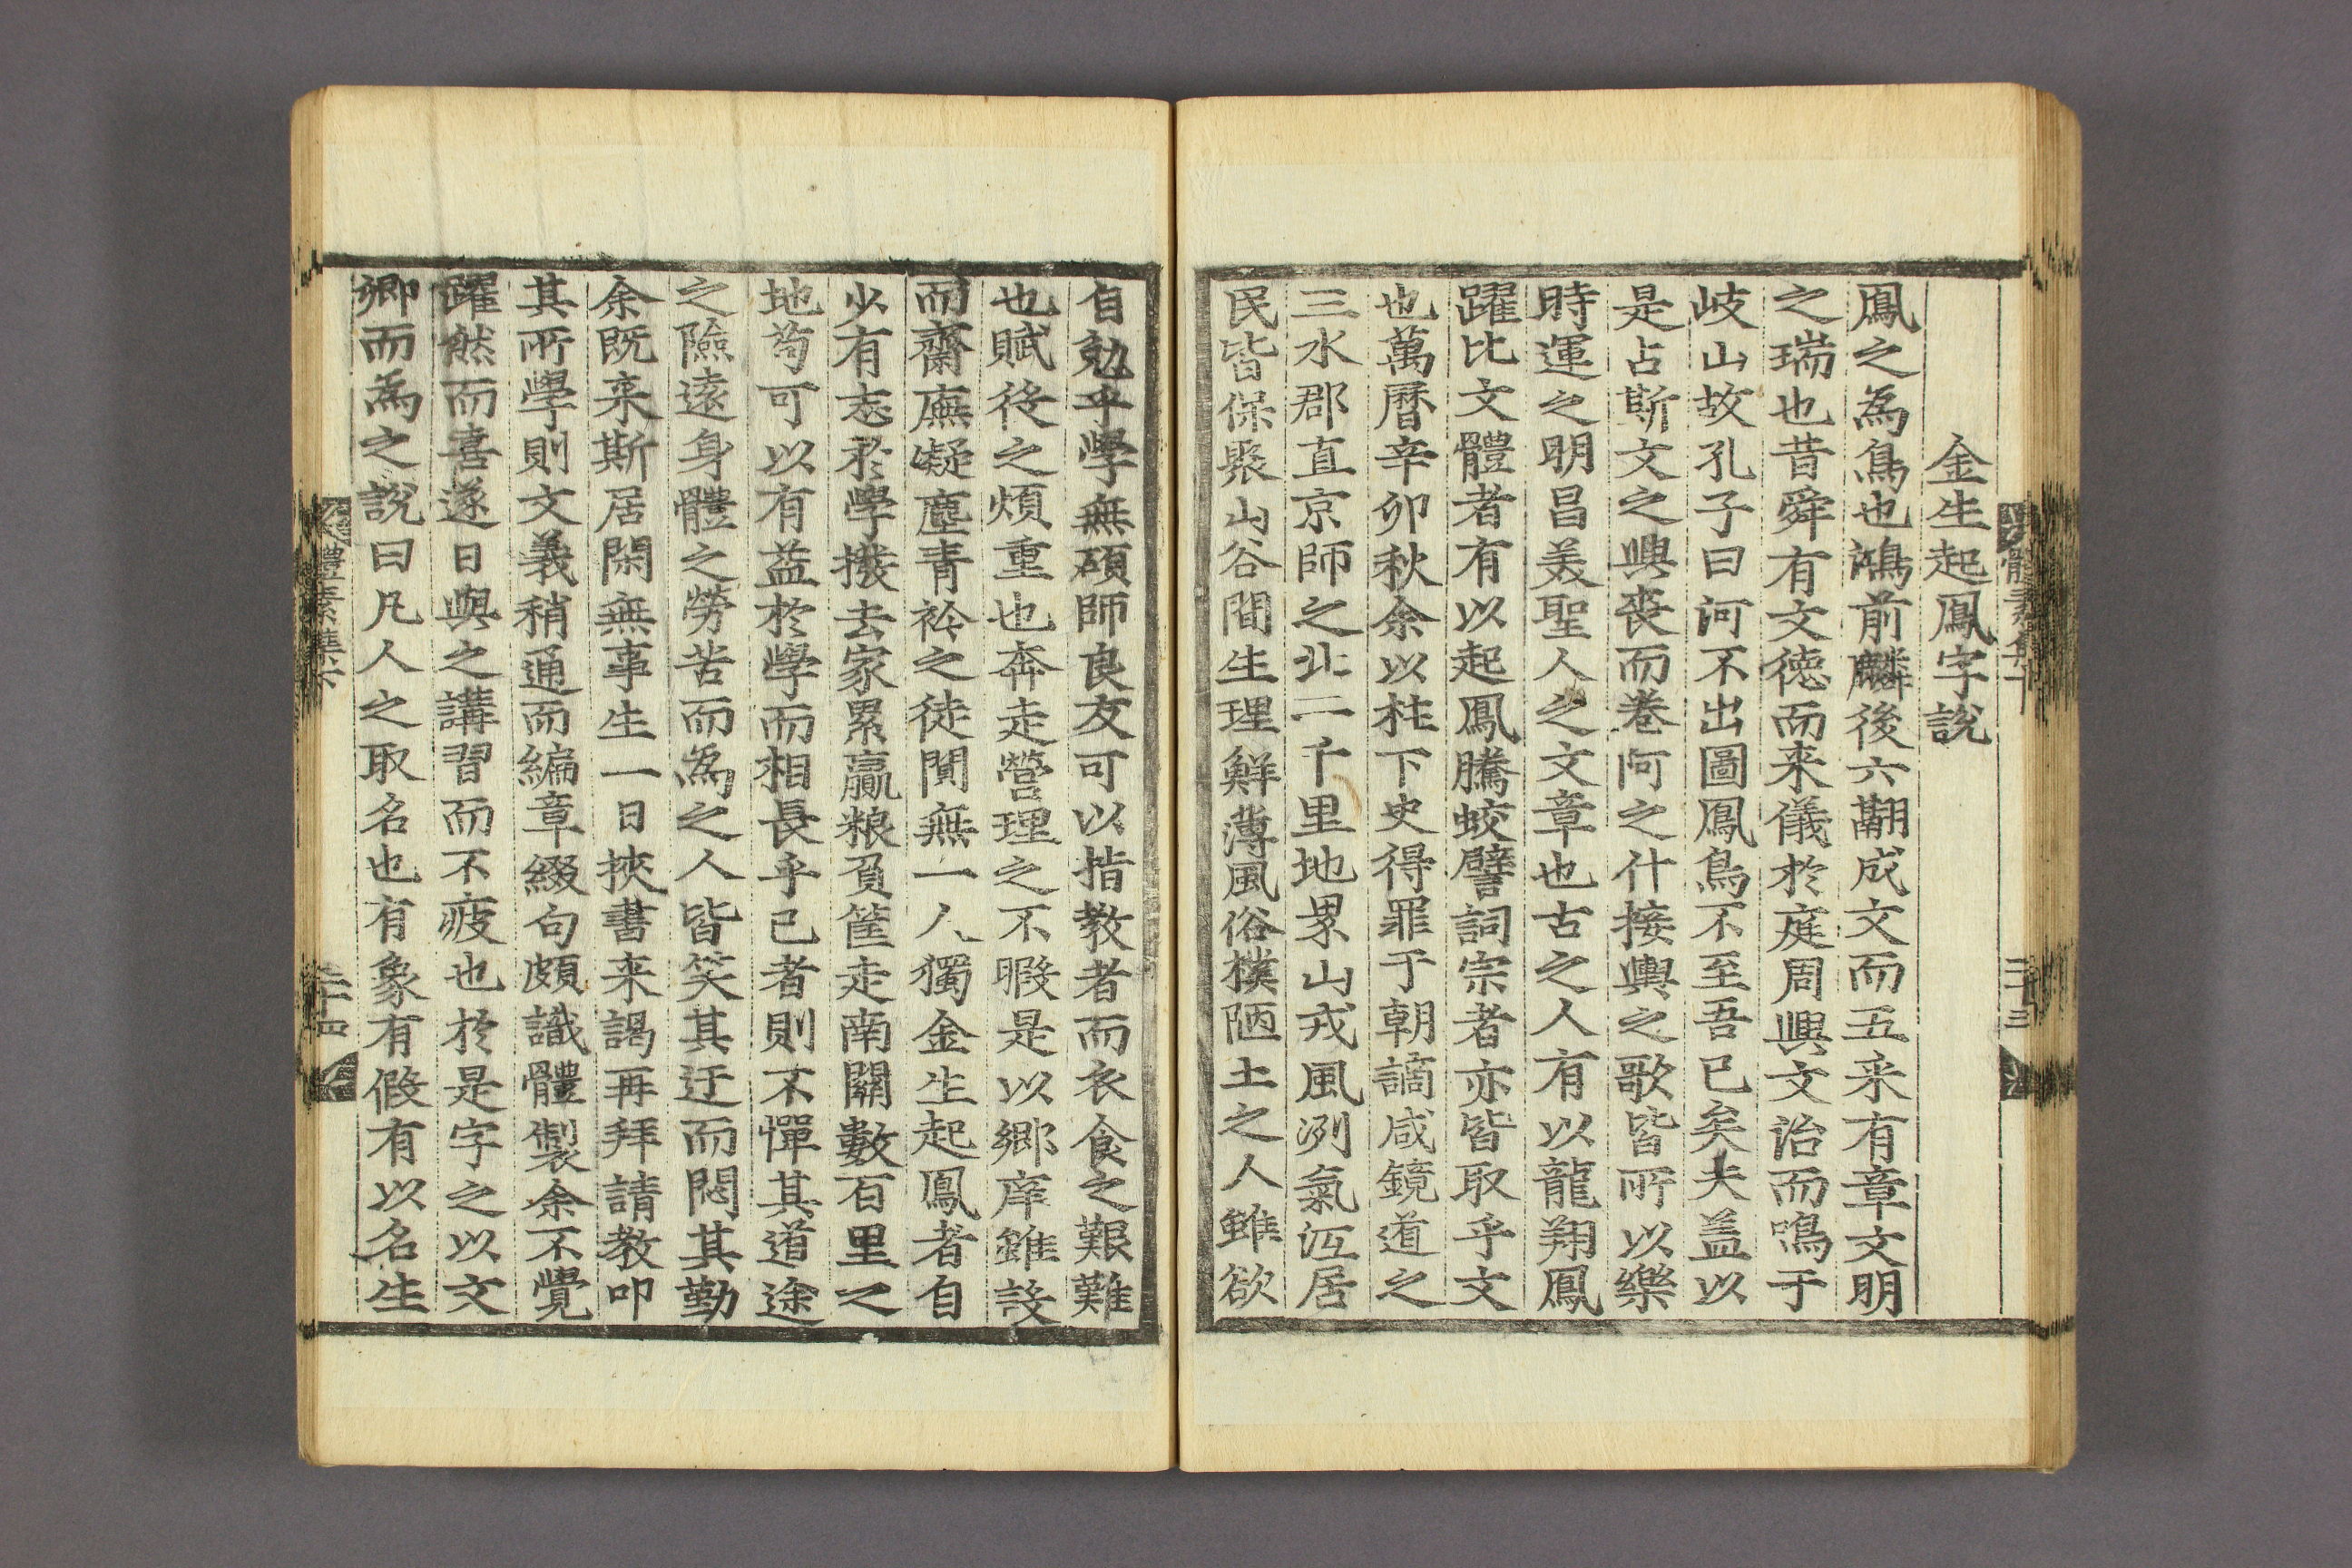 金生起鳳字說
鳳之為鳥也鴻前麟後六翮成文而五采有章文明
之瑞也昔舜有文德而来儀於庭周興文治而鳴于
岐山故孔子曰河不出圖鳳鳥不至吾已矣夫盖以
是占斯文之興喪而卷阿之什接輿之歌皆所以樂
時運之明昌美聖人之文章也古之人有以龍翔鳳
躍比文體者有以起鳳騰蛟譬詞宗者亦皆取乎文
也萬曆辛卯秋余以柱下史得罪于朝謫咸鏡道之
三水郡直京師之北二千里地累山戎風冽氣冱居
民皆保聚山谷間生理鮮薄風俗樸陋土之人雖欲
自勉乎學無碩師良友可以指教者而衣食之艱難
也賦役之煩重也奔走營理之不暇是以鄉庠雖設
而齋廡凝塵青衿之徒闃無一人獨金生起鳳者自
少有志於學撥去家累贏粮負笈走南關數百里之
地苟可以有益於學而相長乎己者則不憚其道途
之險遠身體之勞苦而為之人皆笑其迂而悶其勤
余既来斯居閑無事生一日挾書来謁再拜請教叩
其所學則文義稍通而編章綴句頗識體製余不覺
躍然而喜遂日與之講習而不疲也於是字之以文
卿而為之說曰凡人之取名也有象有假有以名生
體素集下
二十三
二十四